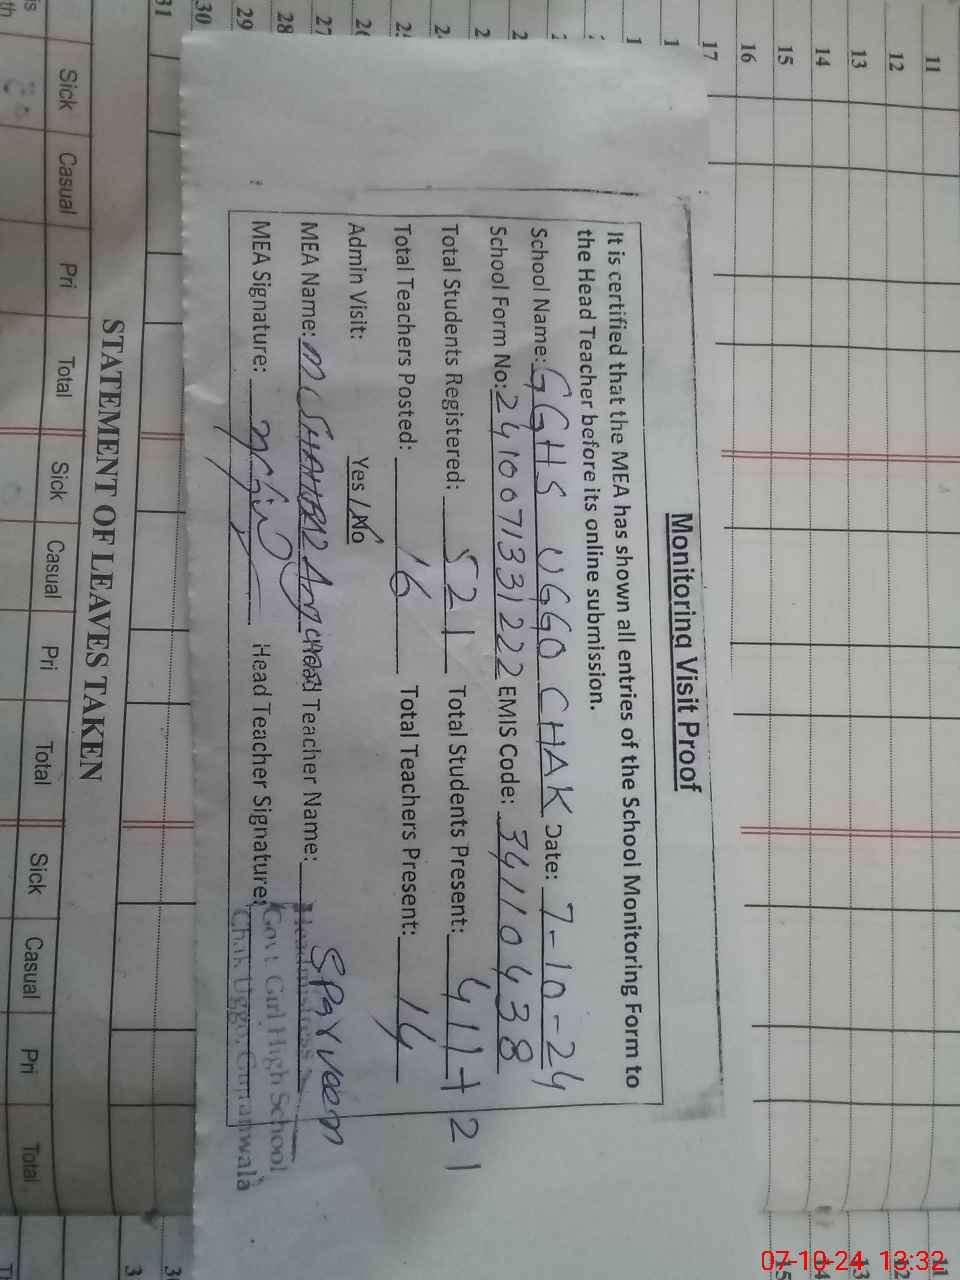 Monitoring Visit Proof
It is certified that the MEA has shown all entries of the School Monitoring Form to
the Head Teacher before its online submission.
School Name: GGHS UGGO CHAK Date: 7-10-24
School Form No: 24100713312 22 EMIS Code: 34110438
Total Students Registered: 521 Total Students Present: 411+21
Total Teachers Posted: 16 Total Teachers Present: 14
Admin Visit: Yes / No
MEA Name: Head Teacher Name: S Parveen
MEA Signature: Head Teacher Signature:
Headmistress
Govt. Girl High School
Chak Uggo, Gujranwala
STATEMENT OF LEAVES TAKEN
Sick Casual Pri Total Sick Casual Pri Total Sick Casual Pri Total
11
12
13
14
15
16
17
27
28
29
30
31
07-10-24 13:32